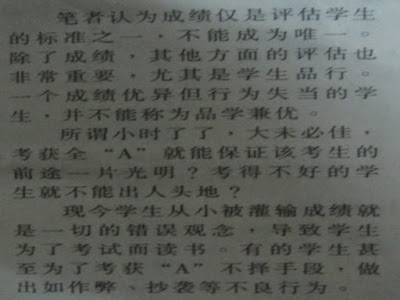 笔者认为成绩仅是评估学生
的标准之一，不能成为唯一。
除了成绩，其他方面的评估也
非常重要，尤其是学生品行。
一个成绩优异但行为失当的学
生，并不能称为品学兼优。
所谓小时了了，大未必佳，
考获全“A”就能保证该考生的
前途一片光明？考得不好的学
生就不能出人头地？
现今学生从小被灌输成绩就
是一切的错误观念，导致学生
为了考试而读书。有的学生甚
至为了考获“A”不择手段，做
出如作弊、抄袭等不良行为。